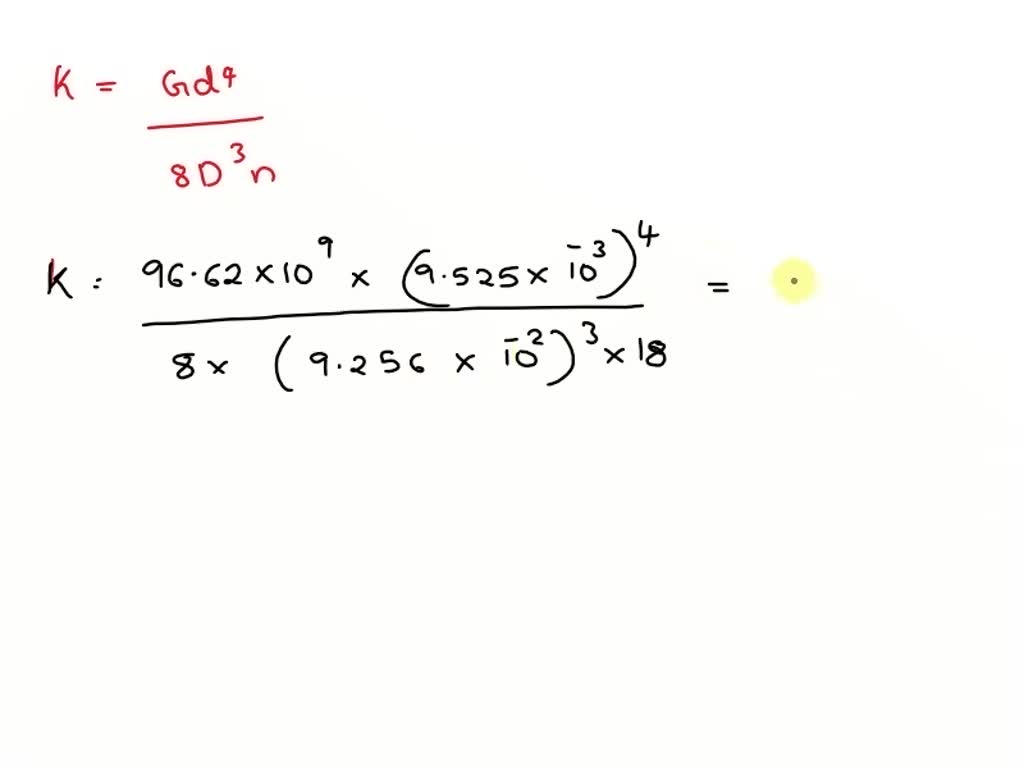 K = Gd⁴ / 8D³n
K = 96.62 × 10⁹ × (9.525 × 10⁻³)⁴ / 8 × (9.256 × 10⁻²)³ × 18 =